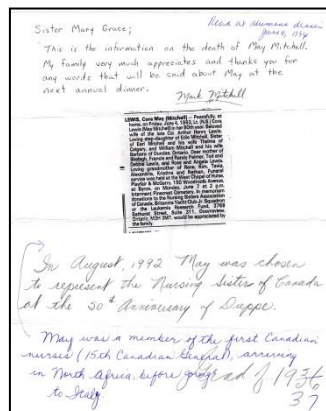 Read at alumnae dinner
June 9, 1994
Sister Mary Grace;
This is the information on the death of May Mitchell.
My family very much appreciates and thanks you for
any words that will be said about May at the
next annual dinner.
Mark Mitchell
LEWIS, Cora May (Mitchell) - Peacefully, at
home, on Friday, June 4, 1993, Lt. (N.S.) Cora
Lewis (May Mitchell) in her 80th year. Beloved
wife of the late Col. Arthur Henry Lewis.
Loving step-daughter of Edie Mitchell. Sister
of Earl Mitchell and his wife Thelma of
Calgary, and William Mitchell and his wife
Barbara of Dundas, Ontario. Dear mother of
Shelagh, Francis and Randy Palmer, Tod and
Debbie Lewis, and Rost and Angela Lewis.
Loving grandmother of Rene, Kim, Tavia,
Alexandra, Kristina and Nathan. Funeral
service was held at the West Chapel of Hulse,
Playfair & McGarry, 150 Woodroffe Avenue,
at Byron, on Monday, June 7 at 2 p.m.
Interment Pinecrest Cemetery. In memoriam
donations to the Nursing Sisters Association
of Canada, Britannia Yacht Club Jr. Squadron
or the Leukemia Research Fund, 3768
Bathurst Street, Suite 311, Downsview
Ontario, M3H 3M7, would be appreciated by
the family.
In August, 1992 May was chosen
to represent the Nursing Sisters of Canada
at the 50th Anniversary of Dieppe.
May was a member of the first Canadian
nurses (15th Canadian General), arriving
in North Africa before going
to Italy
Grad of 1936
37